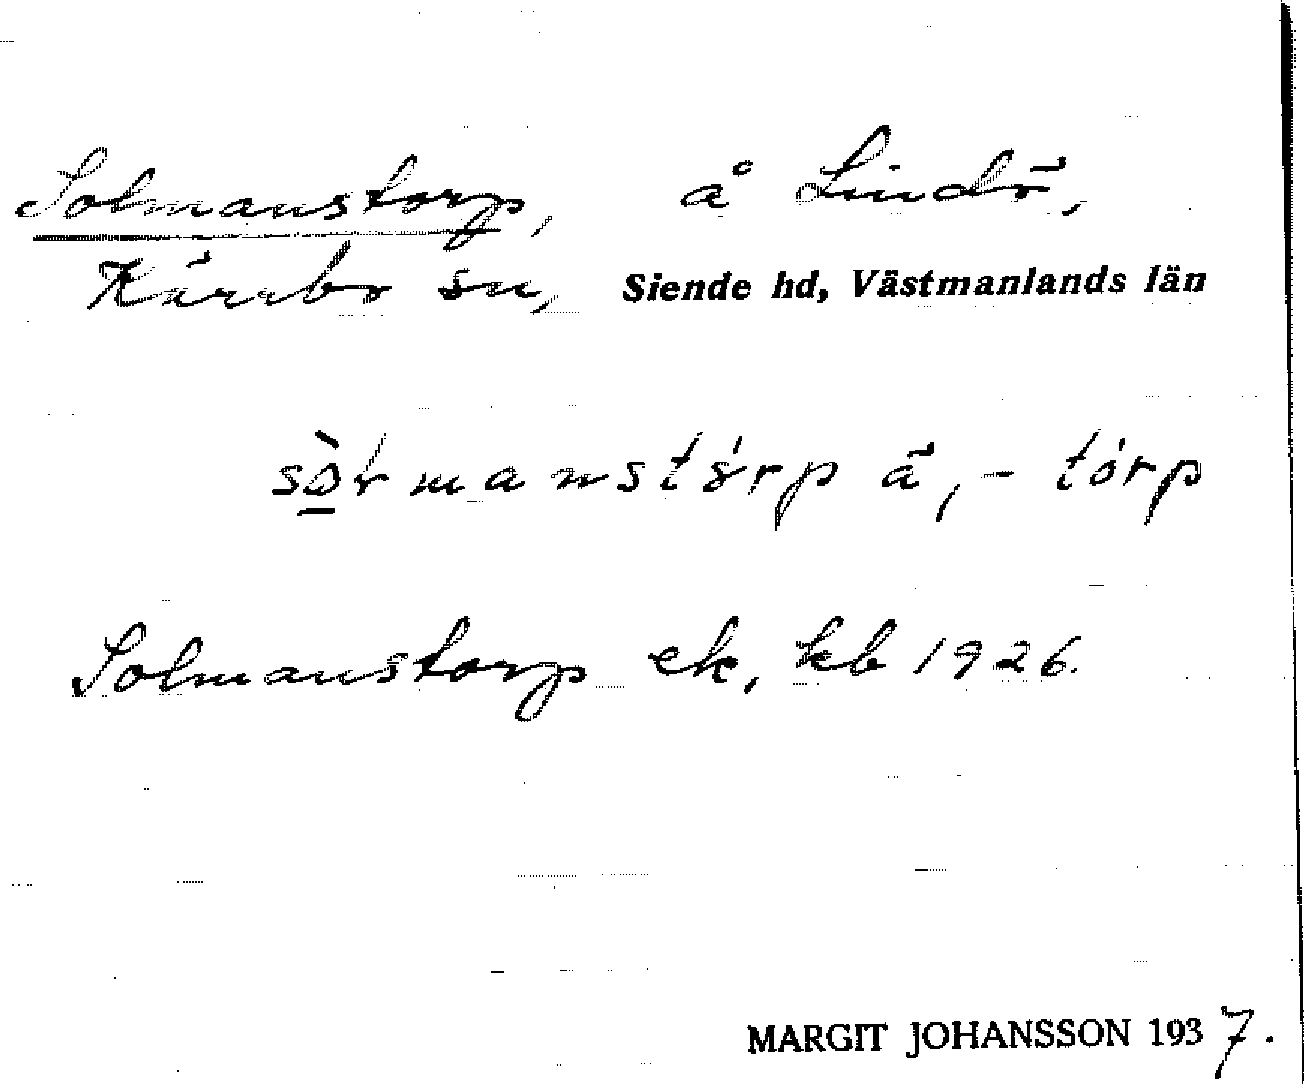 Solmanstorp, å Lindö,
Kärrbo sn, Siende hd, Västmanlands län
sò̱lmanstórp ä, - tórp
Solmanstorp ek, kb 1926.
MARGIT JOHANSSON 1937.